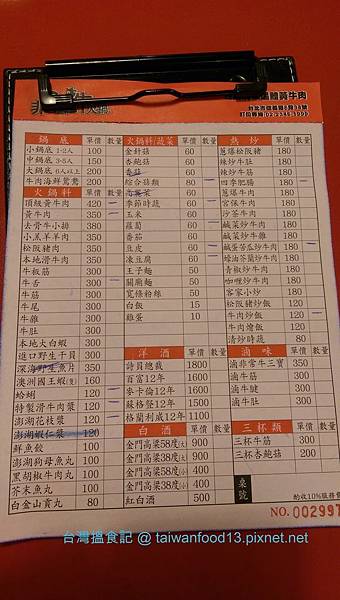 非 牛
溫體黃牛肉
台北市信義路4段58號
訂位專線:02-2346-3999
鍋底 單價 數量
小鍋底 1-2人 100
中鍋底 3-5人 150
大鍋底 6人以上 200
牛肉海鮮鴛鴦 200
火鍋料 單價 數量
頂級黃牛肉 420
黃牛肉 350
去骨牛小排 380
小羔羊羊肉 350
松阪豬肉 350
本地滑牛肉 350
牛板筋 300
牛舌 300
牛筋 300
牛尾 300
牛雜 300
牛肚 300
本地大白蝦
進口野生干貝 300
深海野生魚片 350
澳洲國王蝦(隻) 160
蛤蜊 120
特製滑牛肉漿 120
澎湖花枝漿 120
澎湖蝦仁漿 120
鮮魚餃 100
澎湖狗母魚丸 100
黑胡椒牛肉丸 100
芥末魚丸 100
白金山貢丸 80
火鍋料/蔬菜 單價 數量
金針菇 60
杏鮑菇 60
香菇 60
綜合菇類 80
高麗菜 60
季節時蔬 60
玉米 60
蘿蔔 60
番茄 60
豆皮 60
凍豆腐 60
王子麵 50
關廟麵 50
寬條粉絲 50
白飯 15
雞蛋 10
熱炒 單價 數量
蔥爆松阪豬 180
辣炒牛肚 180
辣炒牛筋 180
四季肥腸 180
蔥爆牛肉 180
宮保牛肉 180
沙茶牛肉 180
鹹菜炒牛肉 180
鹹菜炒牛雜 180
鹹蛋苦瓜炒牛肉 180
蠔油芥蘭炒牛肉 180
青椒炒牛肉 180
咖哩炒牛肉 180
客家小炒 180
松阪豬炒飯 120
牛肉炒飯 120
牛肉燴飯 120
清炒時蔬 80
洋酒 單價 數量
詩貝總裁 1800
百富12年 1600
麥卡倫12年 1600
蘇格登12年 1500
格蘭利威12年 1100
白酒 單價 數量
金門高粱58度(大) 900
金門高粱38度(大) 900
金門高粱58度(小) 400
金門高粱38度(小) 400
紅白酒 500
滷味 單價 數量
滷非常牛三寶 350
滷牛筋 300
滷牛腱 300
滷牛肚 300
三杯類 單價 數量
三杯牛筋 300
三杯杏鮑菇 200
桌號
酌收10%服務費
NO. 002997
台灣搵食記 @ taiwanfood13.pixnet.net